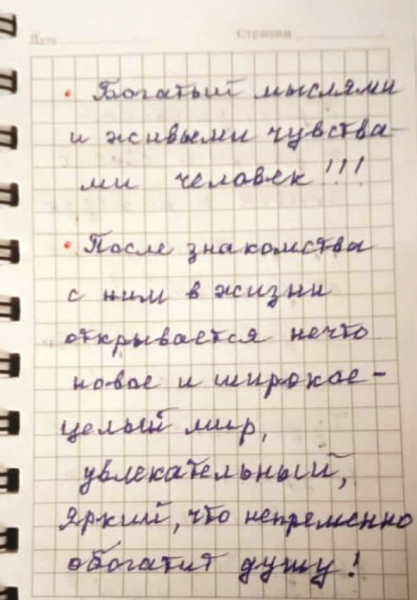 Дата Страницы
• Богатый мыслями
и живыми чувства-
ми человек!!!
• После знакомства
с ним в жизни
открывается нечто
новое и широкое-
целый мир,
увлекательный,
яркий, что непременно
обогатит душу!